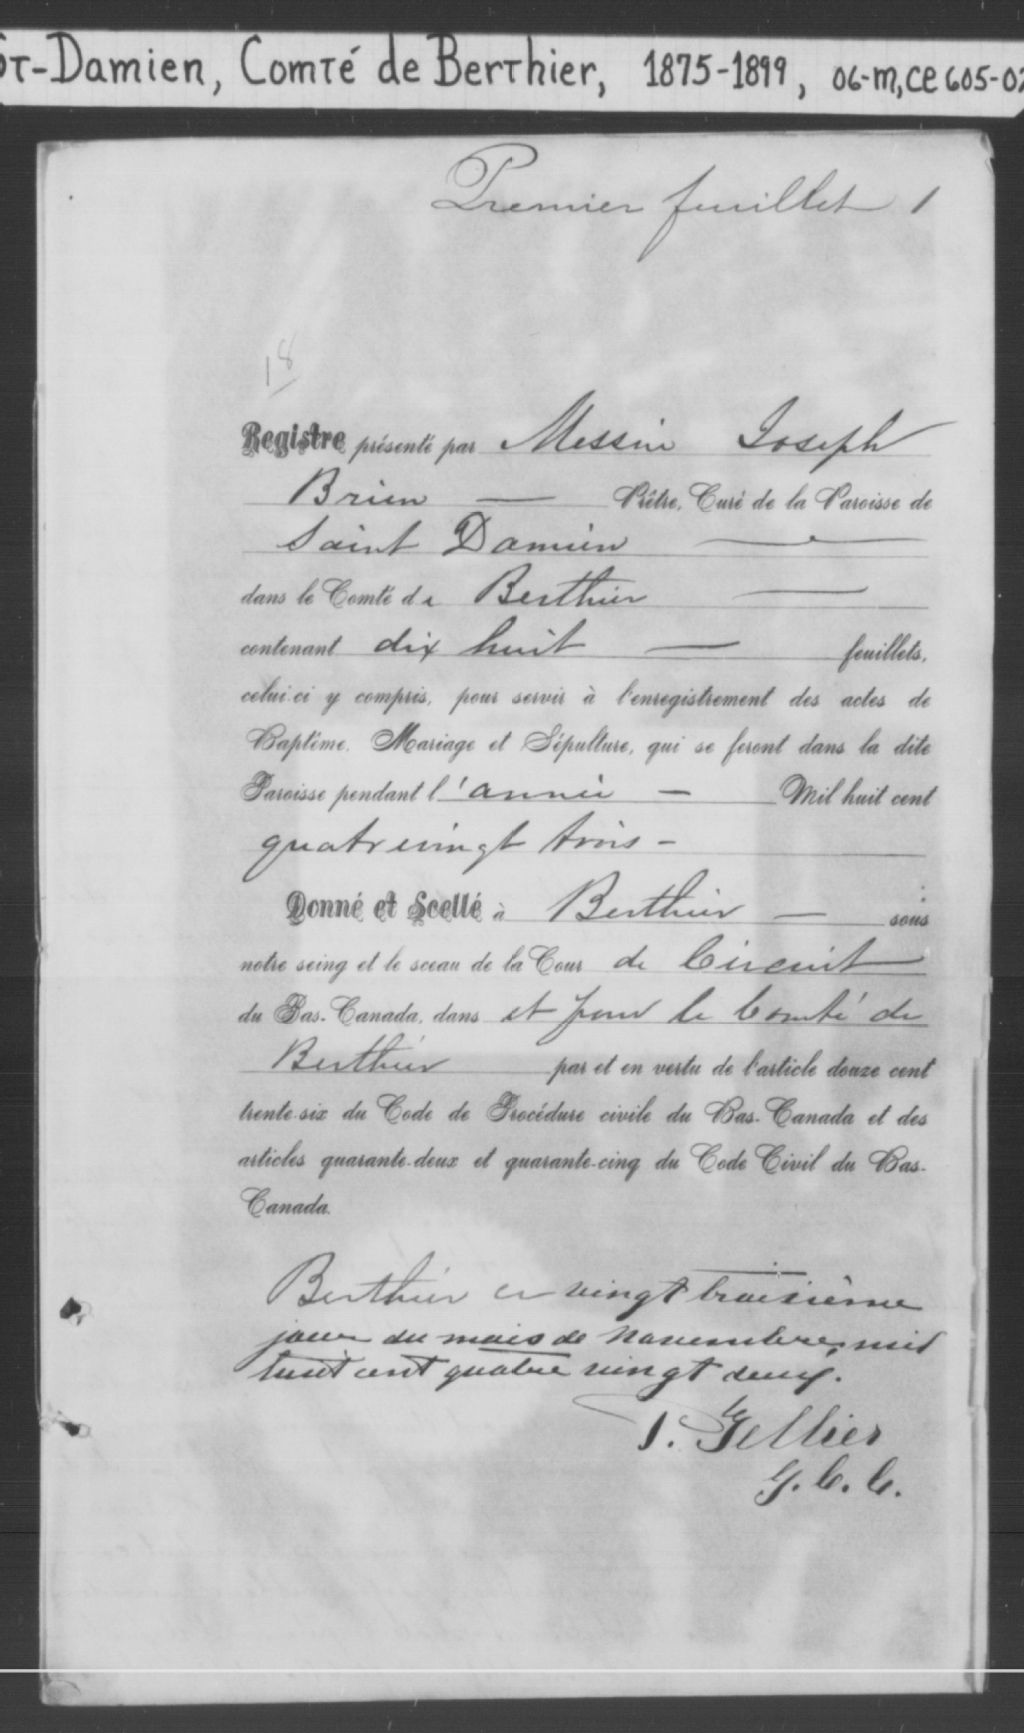 St-Damien, Comté de Berthier, 1875-1899, 06-M, CE605-02
Premier feuillet 1
18
Registre présenté par Messire Joseph
Brien — Prêtre, Curé de la Paroisse de
Saint Damien —
dans le Comté de Berthier —
contenant dix huit — feuillets,
celui-ci y compris, pour servir à l'enregistrement des actes de
Baptême, Mariage et Sépulture, qui se feront dans la dite
Paroisse pendant l'année — Mil huit cent
quatrevingt trois -
Donné et Scellé à Berthier — sous
notre seing et le sceau de la Cour de Circuit
du Bas-Canada, dans et pour le Comté de
Berthier par et en vertu de l'article douze cent
trente-six du Code de Procédure civile du Bas-Canada et des
articles quarante-deux et quarante-cinq du Code Civil du Bas-
Canada.
Berthier ce vingt troisième
jour du mois de Novembre mil
huit cent quatre vingt deux.
G. C. C.